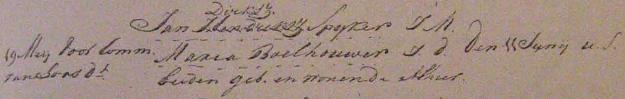 Dirksz
Jan Hendriksz Spyker J. M.
19 Mey Voor Comm. Maria Boelhouwer J. d. den 11 Juny u. S.
beiden geb. en wonende alhier.